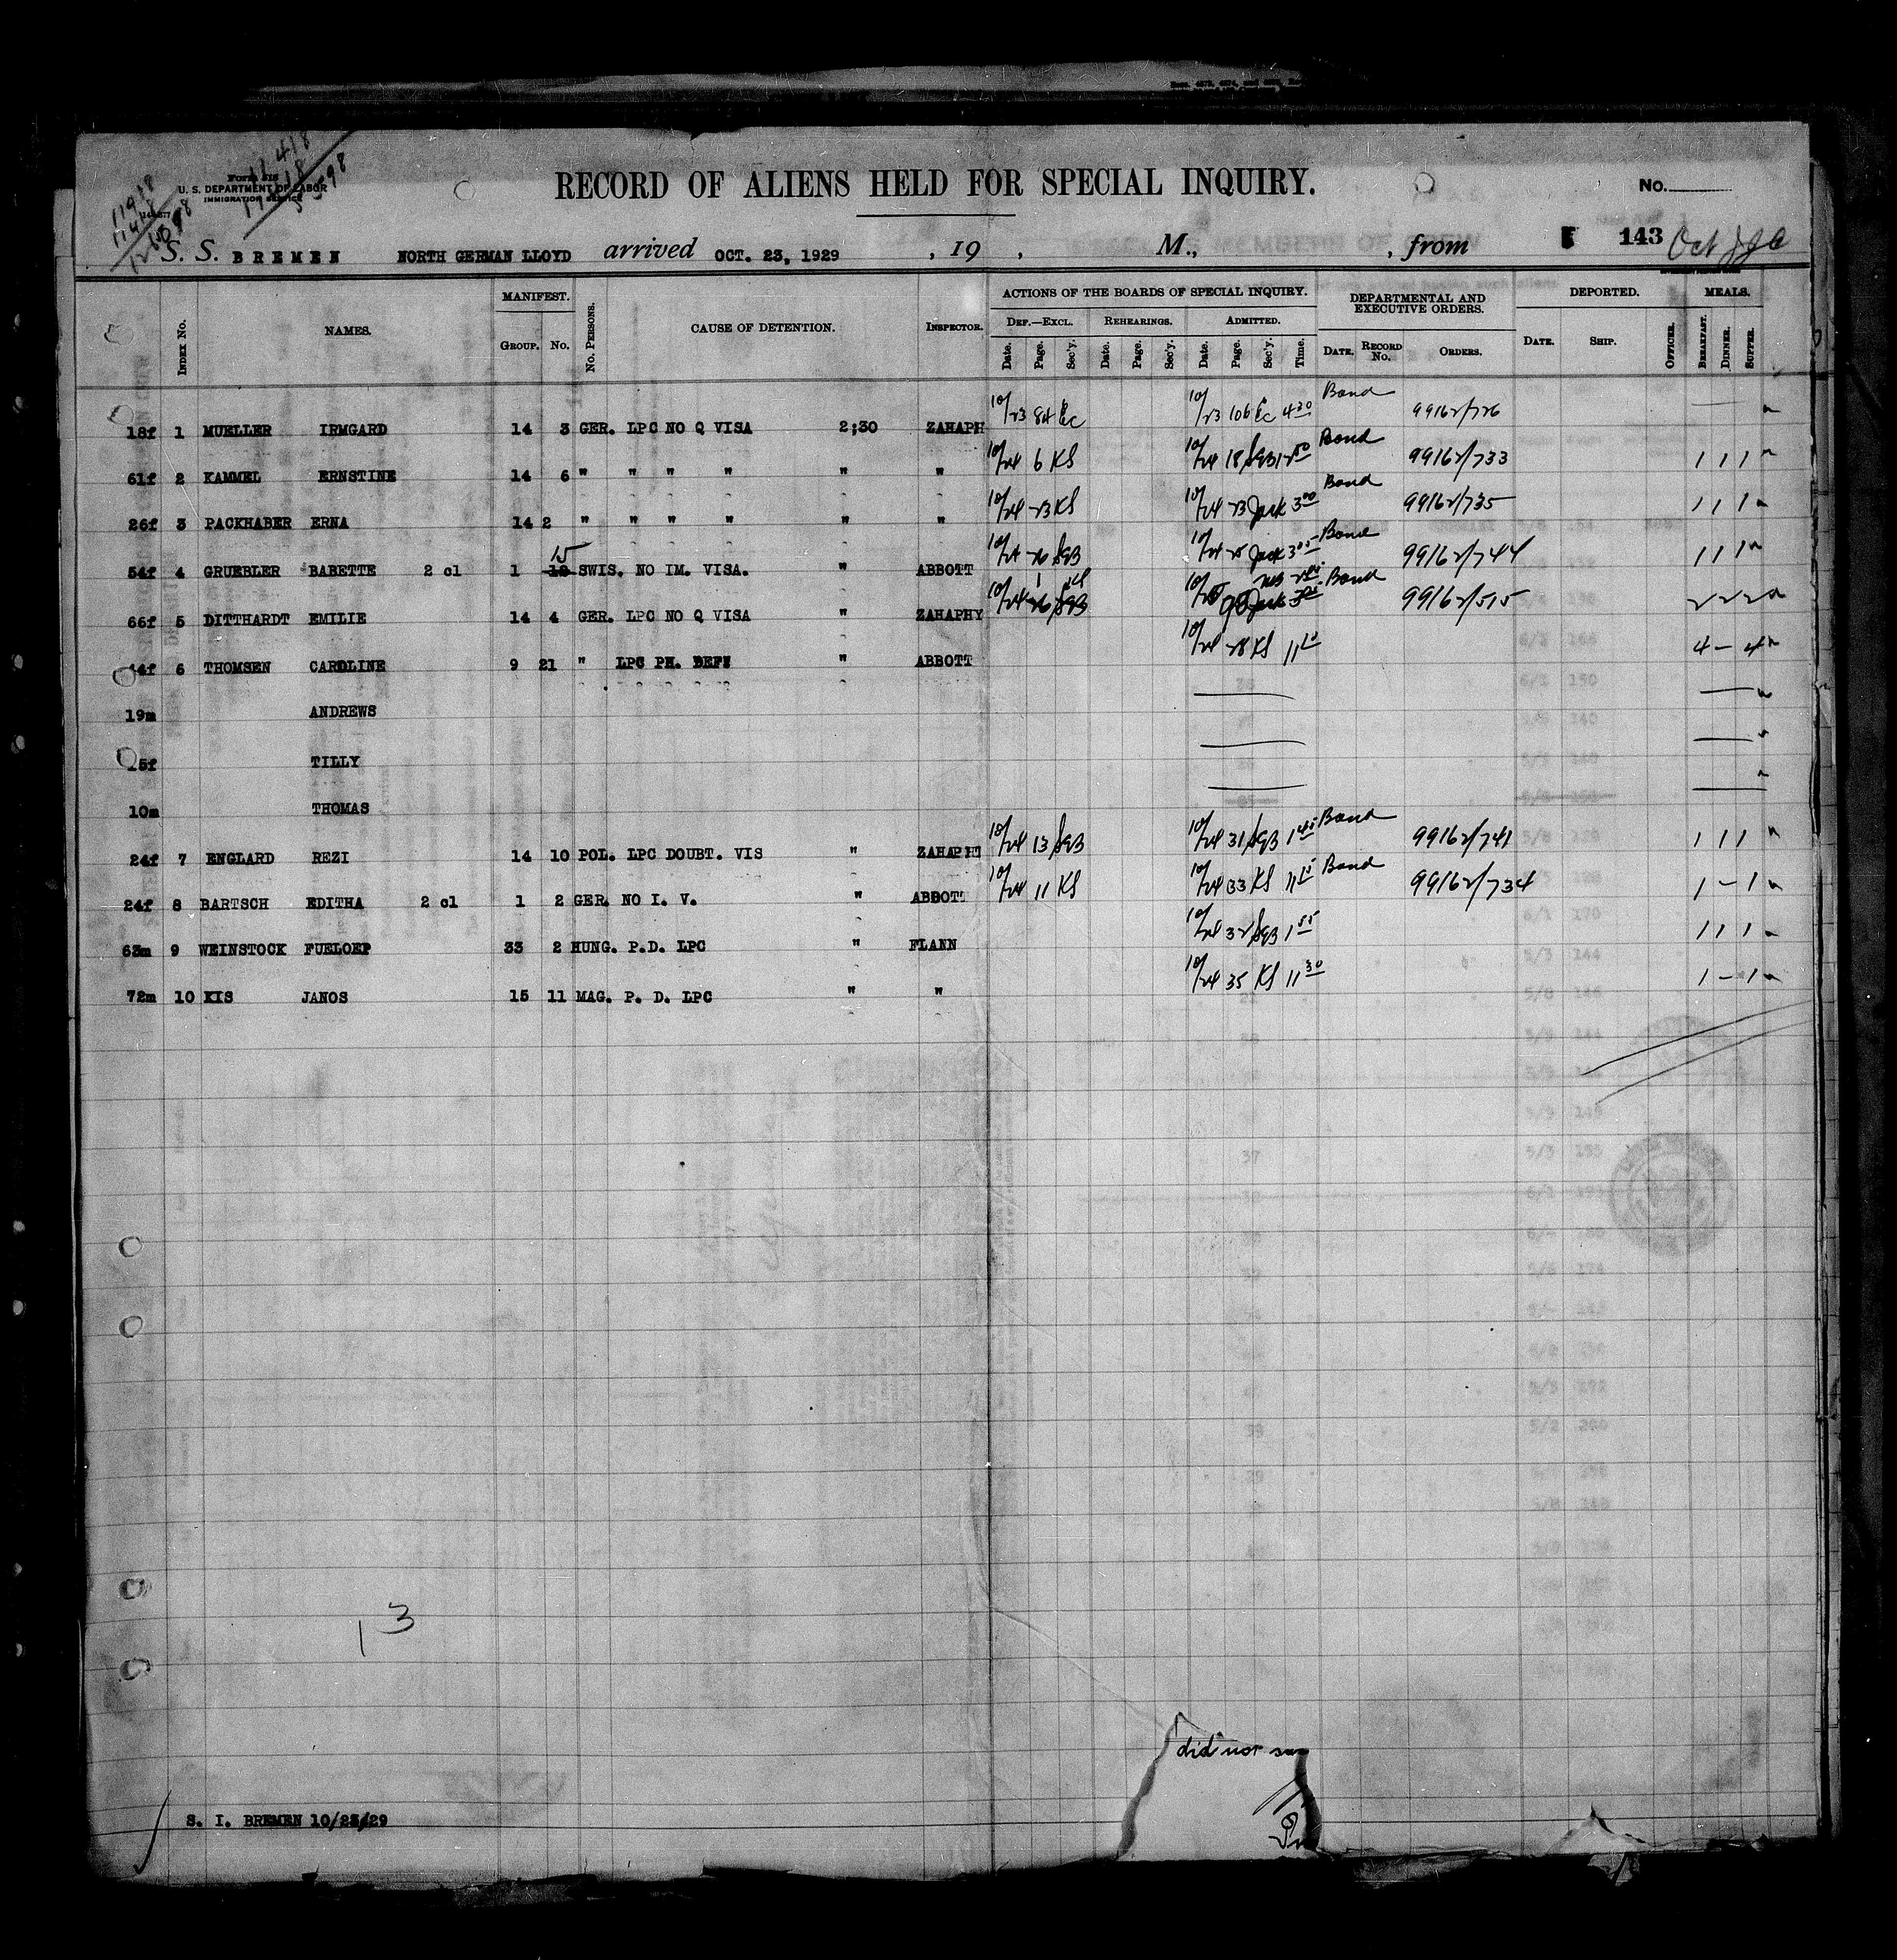 Form 518
U. S. DEPARTMENT OF LABOR
IMMIGRATION SERVICE
RECORD OF ALIENS HELD FOR SPECIAL INQUIRY.
No.
S. S. BREMEN NORTH GERMAN LLOYD arrived OCT. 23, 1929 , 19 , M., , from 143 Oct
INDEX No. NAMES. MANIFEST. GROUP. No. No. PERSONS. CAUSE OF DETENTION. INSPECTOR. ACTIONS OF THE BOARDS OF SPECIAL INQUIRY. DEPARTMENTAL AND EXECUTIVE ORDERS. DEPORTED. MEALS.
DEF.—EXCL. REHEARINGS. ADMITTED.
Date. Page. Sec'y. Date. Page. Sec'y. Date. Page. Sec'y. Time. DATE. RECORD No. ORDERS. DATE. SHIP. OFFICER. BREAKFAST. DINNER. SUPPER.
18f 1 MUELLER IRMGARD 14 3 GER. LPC NO Q VISA 2;30 ZAHAPH 10/23 84 Ec 10/23 106 Ec 4 30 Bond 99162/726
61f 2 KAMMEL ERNSTINE 14 6 " " " " " " 10/24 6 KS 10/24 18 Bond 99162/733 1 1 1
26f 3 PACKHABER ERNA 14 2 " " " " " " 10/24 23 KS 10/24 23 Jack 3 00 Bond 99162/735 1 1 1
54f 4 GRUEBLER BABETTE 2 cl 1 15 SWIS. NO IM. VISA. " ABBOTT 10/24 26 10/24 25 Jack 3 05 Bond 99162/744 1 1 1
66f 5 DITTHARDT EMILIE 14 4 GER. LPC NO Q VISA ZAHAPHY 10/24 Bond 99162/515 2 2 2
44f 6 THOMSEN CAROLINE 9 21 " LPC PH. DEF. " ABBOTT 10/24 28 KS 4 — 4
19m ANDREWS
TILLY
10m THOMAS
24f 7 ENGLARD REZI 14 10 POL. LPC DOUBT. VIS " 10/24 13 10/24 31 1 45 Bond 99162/741 1 1 1
24f 8 BARTSCH EDITHA 2 cl 1 2 GER. NO I. V. " ABBOTT 10/24 11 KS 10/24 33 KS 11 15 Bond 99162/734 1 – 1
63m 9 WEINSTOCK FUELOEP 33 2 HUNG. P.D. LPC " FLANN 10/24 32 1 55 1 1 1
72m 10 KIS JANOS 15 11 MAG. P. D. LPC " " 10/24 35 KS 11 30 1 – 1
13
did not
S. I. BREMEN 10/23/29